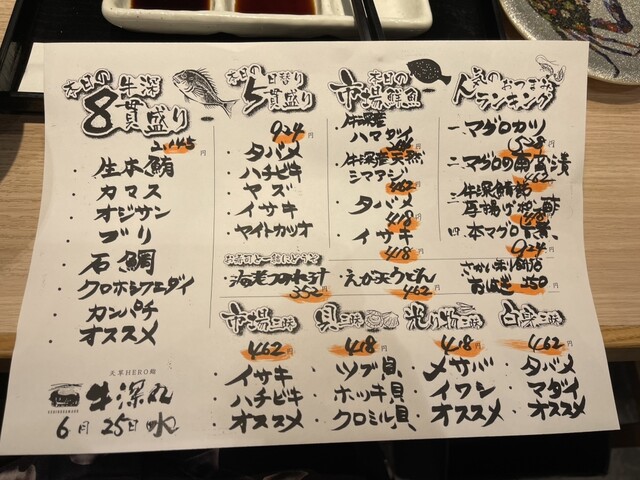 本日の
牛深
8貫盛り
2,145円
・生本鮪
・カマス
・オジサン
・ブリ
・石鯛
・クロホシフエダイ
・カンパチ
・オススメ
天草HERO海
牛深丸
6月25日水
本日の
日替り
5貫盛り
924円
・タバメ
・ハチビキ
・ヤズ
・イサキ
・ヤイトカツオ
お寿司と一緒にどうぞ
・海老つみれ汁
352円
本日の
市場鮮魚
・牛深産
ハマダイ
円
・牛深産天然
シマアジ
462円
・タバメ
418円
・イサキ
418円
・えび天うどん
462円
人気のおつまみ
ランキング
一、マグロカツ
528円
二、マグロの南蛮漬
462円
三、牛深鯖節
厚揚げ
四、本マグロ
924円
さかい利餅店
おはぎ 250円
市場三昧
462円
・イサキ
・ハチビキ
・オススメ
貝三昧
418円
・ツブ貝
・ホッキ貝
・クロミル貝
光り物三昧
418円
・〆サバ
・イワシ
・オススメ
白身三昧
462円
・タバメ
・マダイ
・オススメ